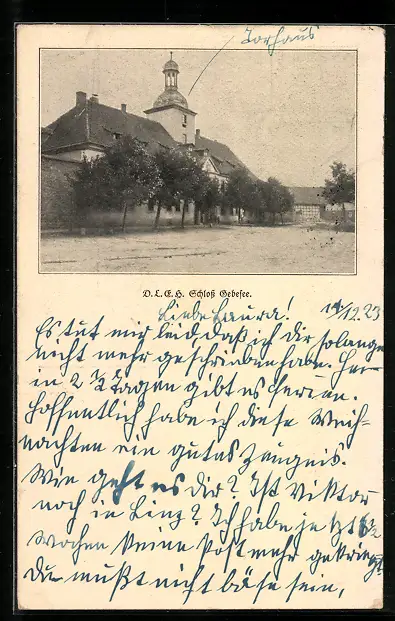 Torhaus
D. L. E. H. Schloß Gebesee.
Liebe Laura! 14/12.23
Es tut mir leid, daß ich Dir solange
nicht mehr geschrieben habe. Hier
in 2 ½ Tagen gibt es Ferien.
Hoffentlich habe ich diese Weih-
nachten ein gutes Zeugnis.
Wie geht es Dir? Ist Viktor
noch in Linz? Ich habe ja jetzt 6½
Wochen keine Post mehr gekriegt.
Du mußt nicht böse sein,